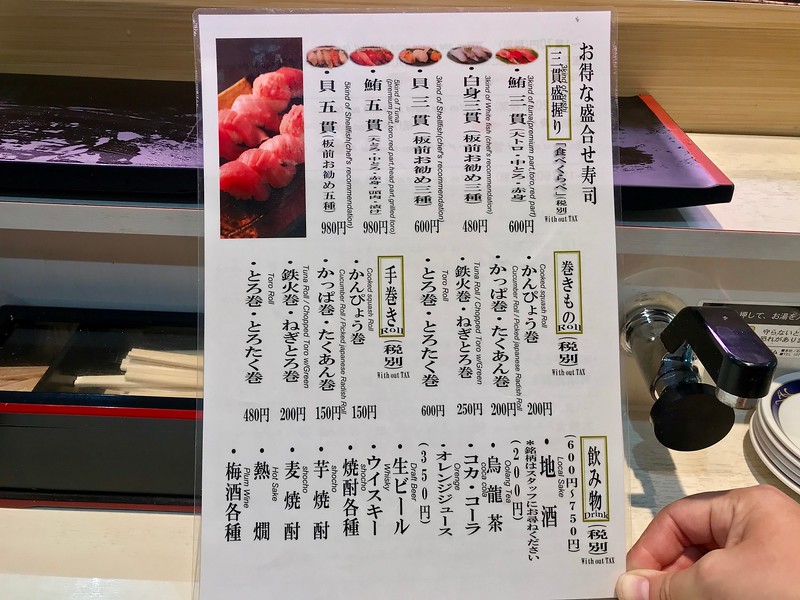 お得な盛合せ寿司
三貫盛握り(食べくらべ)(税別)
3kind of sushi
With out TAX
・鮪三貫(大トロ・中とろ・赤身)
3kind of tuna(premium part,toro,red part)
600円
・白身三貫(板前お勧め三種)
3kind of White fish (chef's recommendation)
480円
・貝三貫(板前お勧め三種)
3kind of Shellfish(chef's recommendation)
600円
・鮪五貫
5kind of Tuna
(premium part,toro,red part,head part,grilled toro)
980円
・貝五貫(板前お勧め五種)
5kind of Shellfish(chef's recommendation)
980円
巻きもの Roll (税別)
With out TAX
・かんぴょう巻
Cooked squash Roll
200円
・かっぱ巻・たくあん巻
Cucumber Roll / Picked japanese Radish Roll
200円
・鉄火巻・ねぎとろ巻
Tuna Roll / Chopped Toro w/Green
250円
・とろ巻・とろたく巻
Toro Roll
600円
手巻き Roll (税別)
With out TAX
・かんぴょう巻
Cooked squash Roll
150円
・かっぱ巻・たくあん巻
Cucumber Roll / Picked japanese Radish Roll
150円
・鉄火巻・ねぎとろ巻
Tuna Roll / Chopped Toro w/Green
200円
・とろ巻・とろたく巻
Toro Roll
480円
飲み物 Drink (税別)
With out TAX
(600円~750円)
・地酒
Local Sake
*銘柄はスタッフにお尋ねください
(200円)
・烏龍茶
Oolang Tea
・コカ・コーラ
coca cola
・オレンジジュース
Orenge
(350円)
・生ビール
Draft Beer
・ウイスキー
Whisky
・焼酎各種
shocho
・芋焼酎
shocho
・麦焼酎
shocho
・熱燗
Hot Sake
・梅酒各種
Plum Wine
押して、お湯を